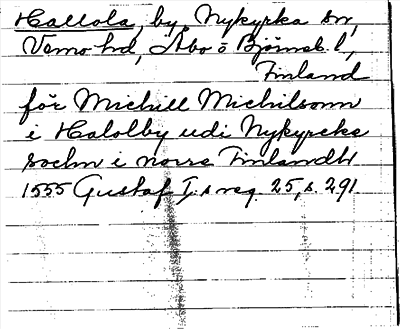 Hallola, by, Nykyrka sn,
Vemo hd, Åbo o Björneb. l,
Finland
för Michill Michilsonn
i Halolby udi Nykyrcke
sochn i norre Finlandh
1555 Gustaf I:s reg. 25, s. 291